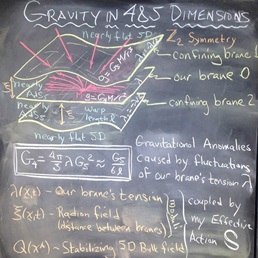 GRAVITY IN 4&5 DIMENSIONS
nearly flat 5D
Z₂ Symmetry
confining brane 1
g=G₅M/r³
λ
nearly AdS₅
g=G₄M/r²
our brane 0
ξ
nearly AdS₅
ξ
Warp length ℓ
confining brane 2
nearly flat 5D
G₄ = 4π/3 λ G₅² ≈ G₅/6ℓ
Gravitational Anomalies
caused by fluctuations
of our brane's tension λ
λ(x,t) - Our brane's tension
ξ(x,t) - Radion field
(distance between branes)
Q(xᴬ) - Stabilizing 5D Bulk field
coupled by
my Effective
Action S